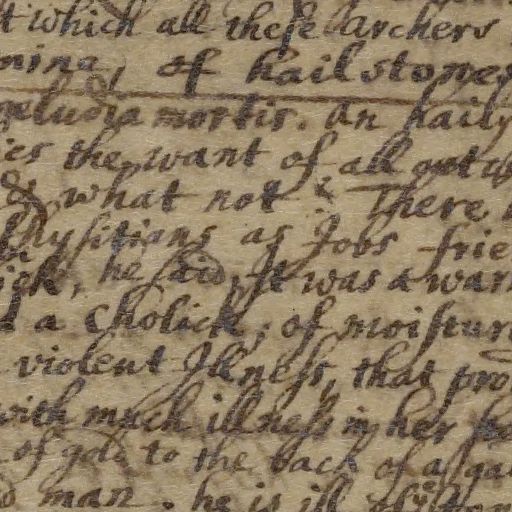 t which all these archers
ning, of hailstones
geludia mortis. An haily
ies the want of all
& what not. There
Physitians as Jobs frie
ick, he said, It was a warn
d a Cholick, of moistur
violent Illness, that pro
with much illness in her
of gold to the back of a
man. he is ill of ye